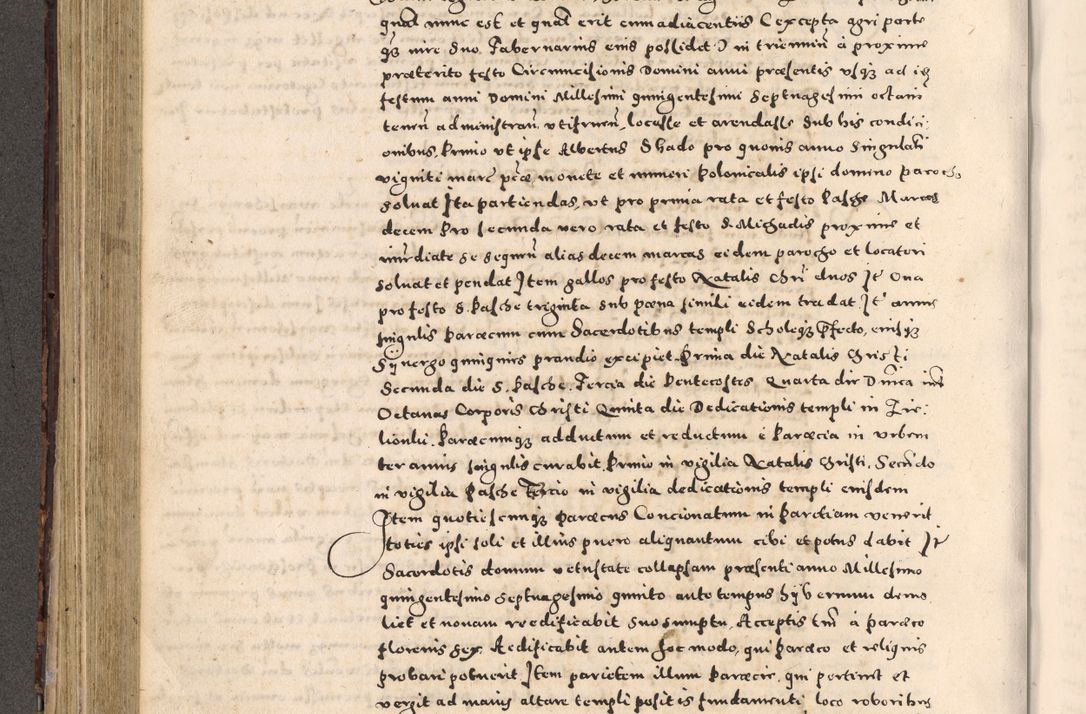 quam nunc est et quam erit cum adiacentiis (excepta agri parte
qȝ iure suo Tabernarius eius possidet) in triennium à proxime
præterito festo Circumcisionis Domini anni præsentis vsqȝ ad id
festum anni Domini Millesimi quingentesimi septuagesimi octavi
tenen administran, vtifruen, locasse et arendasse sub his condici
onibus, Primo vt ipse Albertus Shado pro quouis anno singulari
viginti marc pecuniæ monete et numeri Polonicalis ipsi domino parocho
soluat Ita partiendas, vt pro prima rata et festo Pasche Marcas
decem Pro secunda vero rata et festo S. Michaelis proxime et
immediate se sequen alias decem marcas eidem parocho et locatori
soluat et pendat Item gallos pro festo Natalis Chri duos It Oua
pro festo S. Pasche triginta sub pœna simili eidem tradat It annis
singulis Paræcum cum Sacerdotibus templi Scholeqȝ Pfecto, eiusqȝ
Synergo quinquies prandio excipiet. Prima die Natalis Christi
Secunda die S. Pasche. Tercia die Pentecostes Quarta die Dnica infra
Octauas Corporis Christi Quinta die Dedicationis templi in Zie,,
lionki. Paræcumqȝ adductum et reductum è Paræcia in vrbem
ter annis singulis curabit. Primo in vigilia Natalis Christi. Secundo
in vigilia Pasche Tercio in vigilia dedicationis templi eiusdem
Item quotiescunqȝ Paræcus Concionatum in Parætiam venerit
toties ipsi soli et illius puero aliquantum cibi et potus dabit It
Sacerdotis domum vetustate collapsam præsenti anno Millesimo
quingentesimo septuagesimo quinto ante tempus hybernum demo
liet et nouam reedificabit suo sumptu. Acceptis tm à paræco
florenis sex. Aedificabit autem hoc modo, qui paræco et religuis
probari potuerit Item parietem illum Paræcie, qui pertinet et
vergit ad maius altare templi positis fundamenti loco roboribus